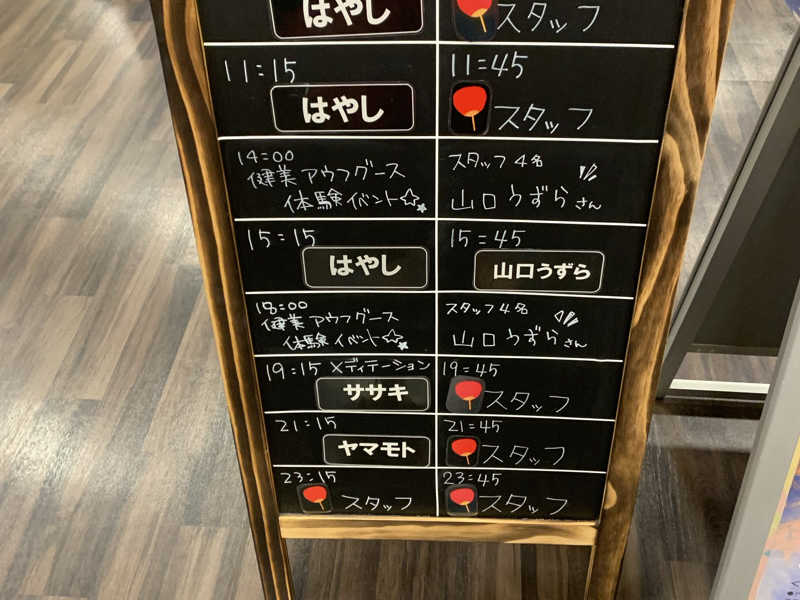 はやし
スタッフ
11:15
はやし
11:45
スタッフ
14:00
健美 アウフグース
体験イベント☆★
スタッフ 4名
山口うずらさん
15:15
はやし
15:45
山口うずら
18:00
健美 アウフグース
体験イベント☆★
スタッフ4名
山口うずらさん
19:15 メディテーション
ササキ
19:45
スタッフ
21:15
ヤマモト
21:45
スタッフ
23:15
スタッフ
23:45
スタッフ